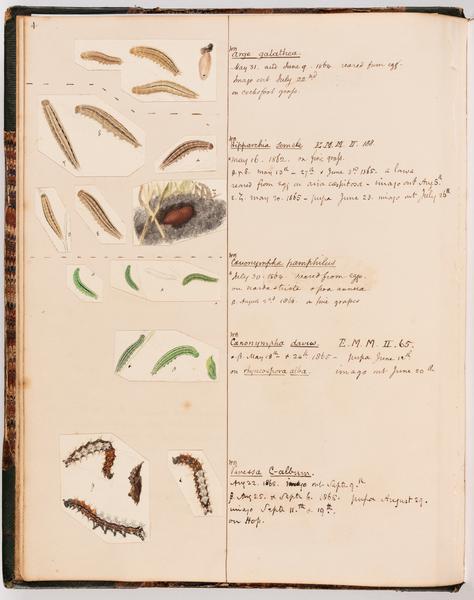 4.
Arge galathea.
May 31. and June 9. 1864 reared from egg.
Imago out July 22nd
on cocksfoot grass.
Hipparchia semele E.M.M. II.
May 16. 1862. on fine grass.
May 13th - 27th & June 3rd 1865. a larva
reared from egg on aira cæspitosa - imago out Aug 5th
May 30. 1865 - pupa June 23. imago out July 26th
Cænonympha pamphilus
July 30. 1864 reared from eggs.
on nardus stricta & poa annua
August 2nd 1864 on fine grasses
Cænonympha davus. E.M.M. II. 65.
May 18th & 24th 1865 - pupa June 12th
on rhyncospora alba. imago out June 20th
Vanessa C-album.
Aug 22. 1865. imago out Septr 9th
β. Aug 25. & Septr 6. 1865. pupa August 29.
imago Septr 11th & 19th.
on Hop.